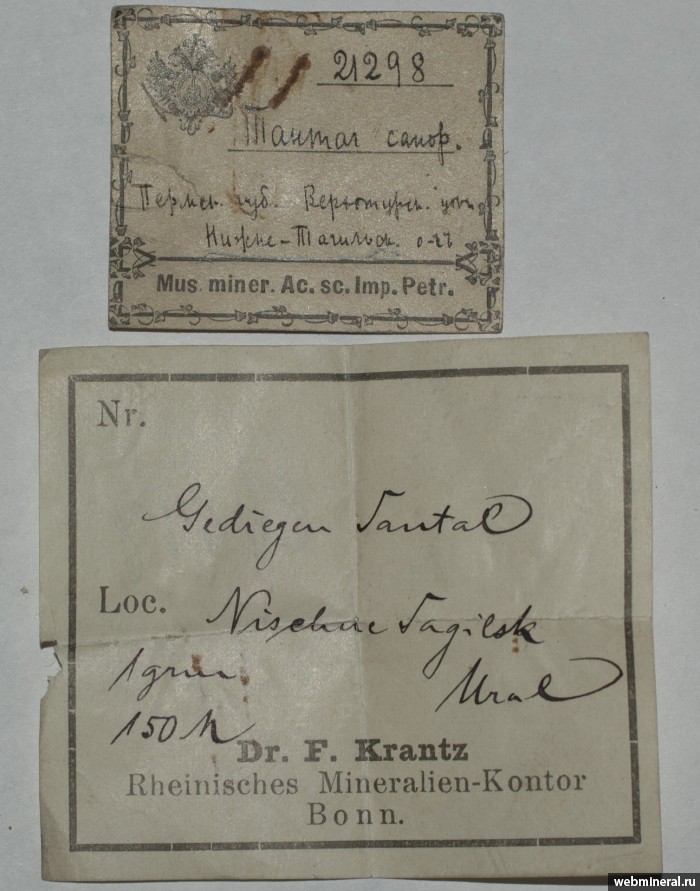 21298
Тантал самор.
Пермск. губ. Верхотурск. уезд.
Нижне-Тагильск. о-гъ
Mus. miner. Ac. sc. Imp. Petr.
Nr.
Gediegen Tantal
Loc. Nischne Tagilsk
1 grm. Ural
150 M
Dr. F. Krantz
Rheinisches Mineralien-Kontor
Bonn.
webmineral.ru